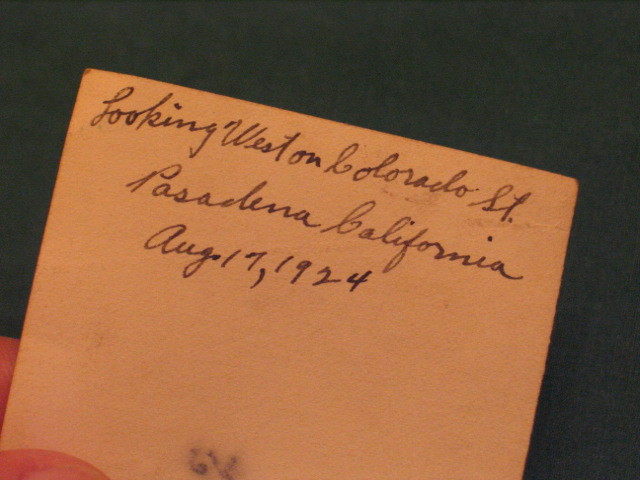 Looking West on Colorado St.
Pasadena California
Aug. 17, 1924